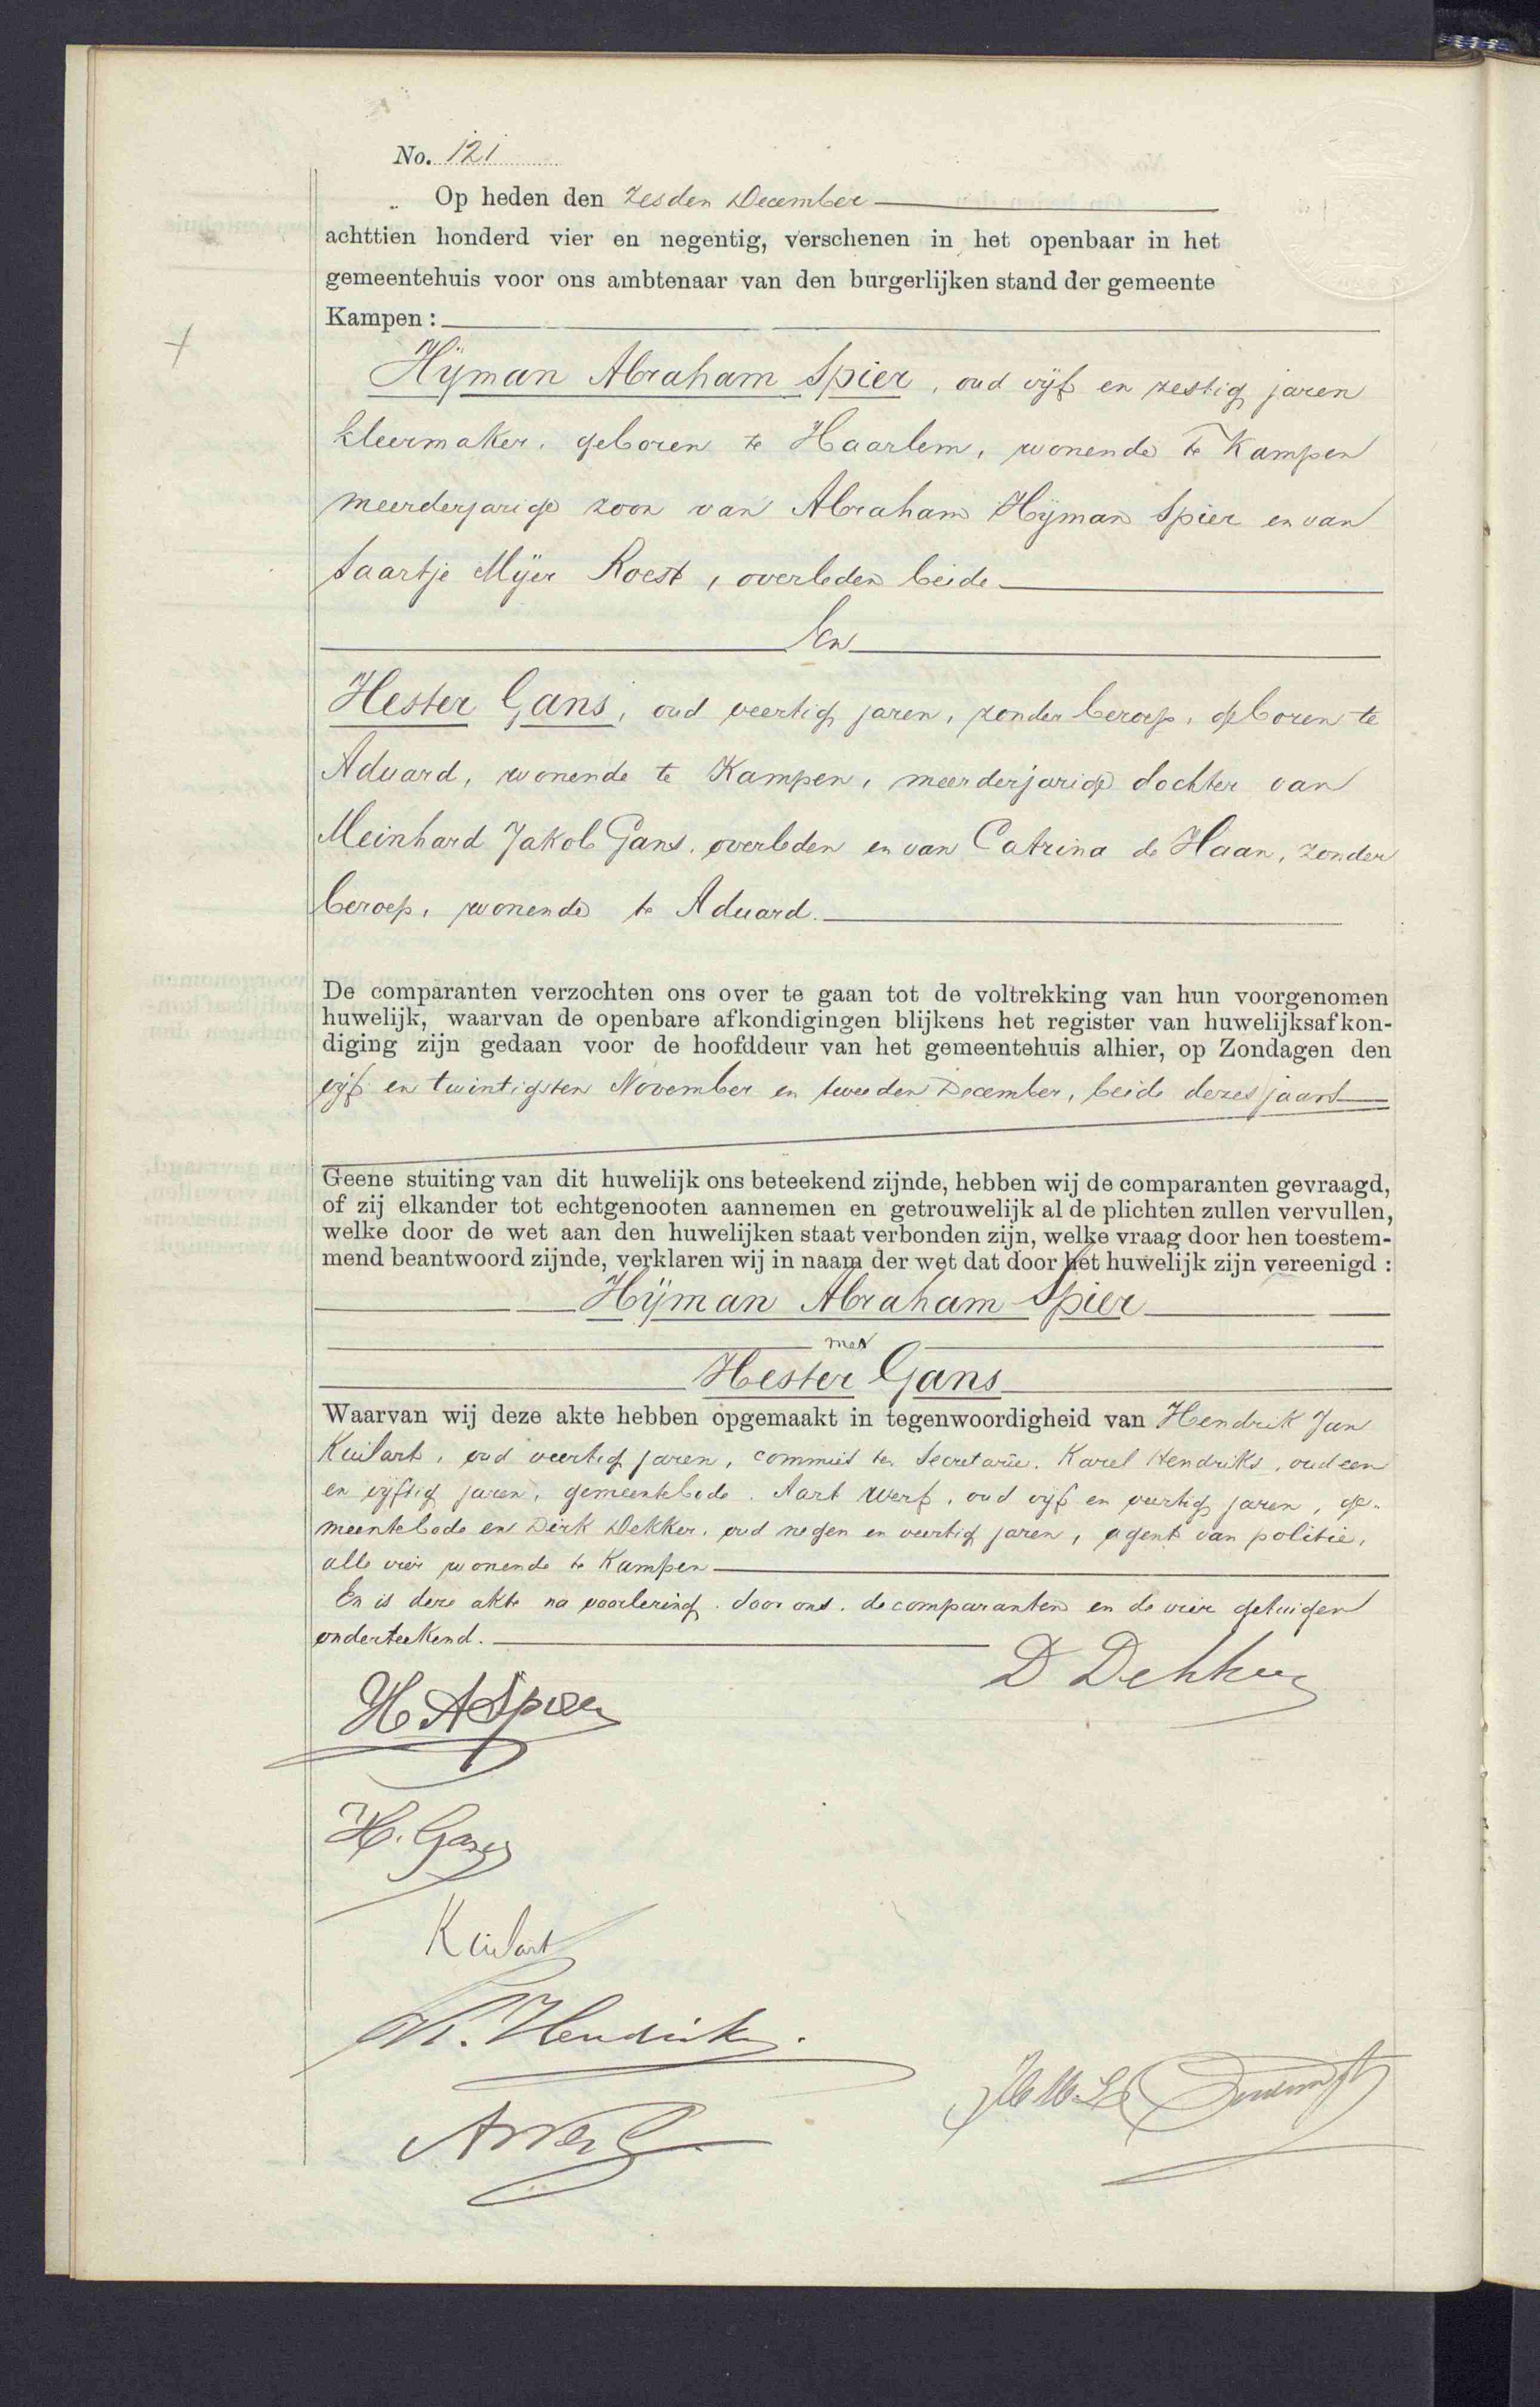 No. 121
Op heden den zesden December
achttien honderd vier en negentig, verschenen in het openbaar in het
gemeentehuis voor ons ambtenaar van den burgerlijken stand der gemeente
Kampen :
Hijman Abraham Spier, oud vijf en zestig jaren
kleermaker, geboren te Haarlem, wonende te Kampen
meerderjarige zoon van Abraham Hijman Spier en van
Saartje Mijer Roest, overleden beide
En
Hester Gans, oud veertig jaren, zonder beroep, geboren te
Aduard, wonende te Kampen, meerderjarige dochter van
Meinhard Jakob Gans, overleden en van Catrina de Haan, zonder
beroep, wonende te Aduard.
De comparanten verzochten ons over te gaan tot de voltrekking van hun voorgenomen
huwelijk, waarvan de openbare afkondigingen blijkens het register van huwelijksafkon-
diging zijn gedaan voor de hoofddeur van het gemeentehuis alhier, op Zondagen den
vijf en twintigsten November en tweeden December, beide dezes jaars
Geene stuiting van dit huwelijk ons beteekend zijnde, hebben wij de comparanten gevraagd,
of zij elkander tot echtgenooten aannemen en getrouwelijk al de plichten zullen vervullen,
welke door de wet aan den huwelijken staat verbonden zijn, welke vraag door hen toestem-
mend beantwoord zijnde, verklaren wij in naam der wet dat door het huwelijk zijn vereenigd :
Hijman Abraham Spier
met
Hester Gans
Waarvan wij deze akte hebben opgemaakt in tegenwoordigheid van Hendrik Jan
Kuilart, oud veertig jaren, commies ter Secretarie, Karel Hendriks, oud een
en vijftig jaren, gemeentebode, Aart Werf, oud vijf en veertig jaren, ge-
meentebode en Dirk Dekker, oud negen en veertig jaren, agent van politie,
alle vier wonende te Kampen
En is deze akte na voorlezing, door ons, de comparanten en de vier getuigen
onderteekend.
D Dekker
H A Spier
H. Gans
Kuilart
K. Hendriks.
A Werf